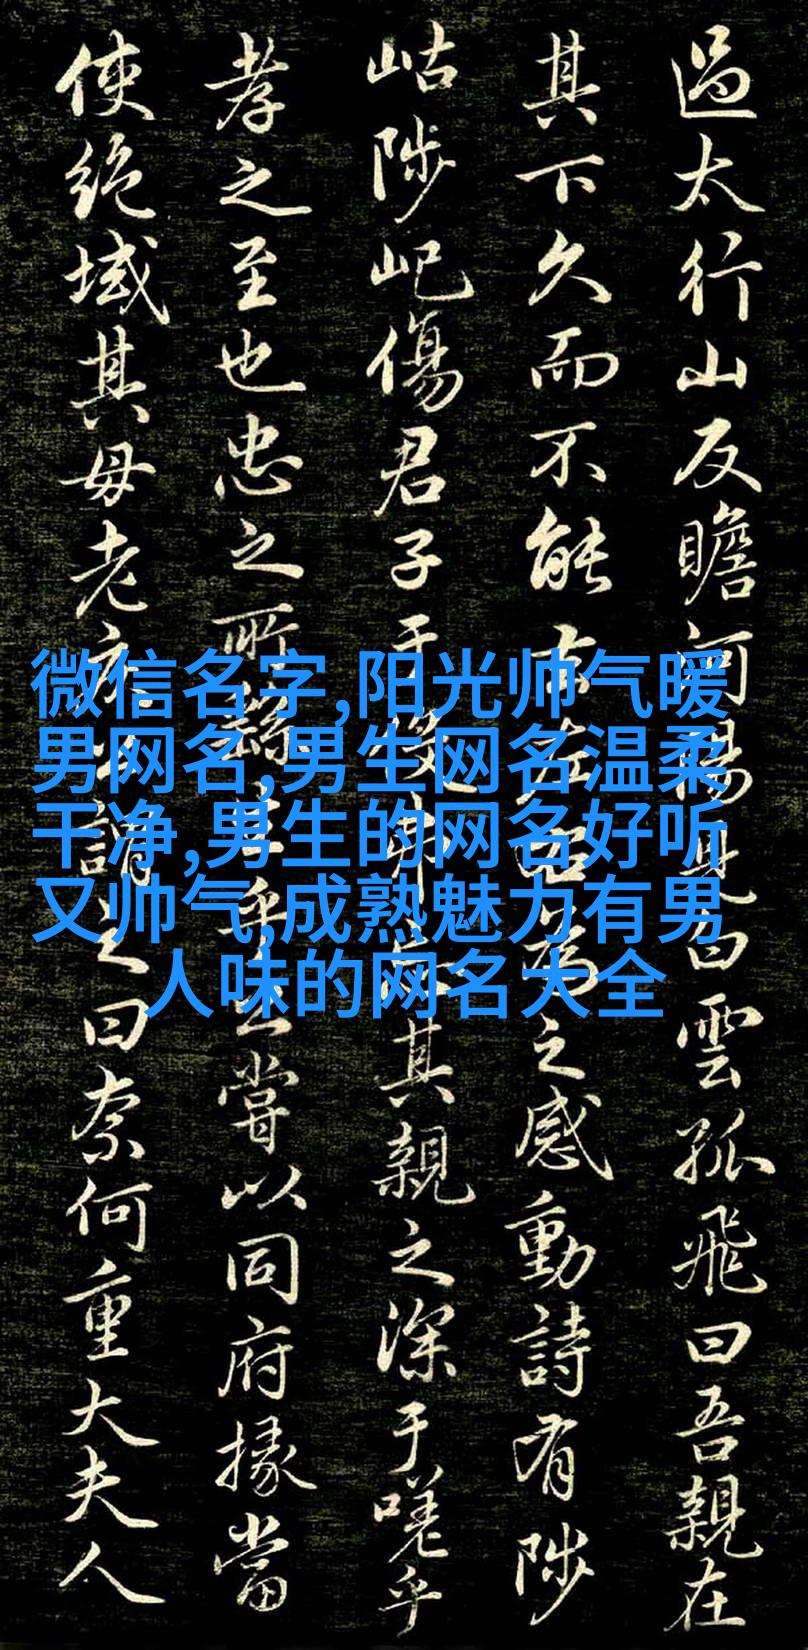 過太行山反瞻河陽見白雲孤飛曰吾親在
其下久而不能去左右為之感動詩有陟
岵陟屺傷君子于役弗忘其親之深于嗟乎
孝之至也忠之所繇生乎公嘗以同府掾當
使絕域其母老疾公謂之曰奈何重大夫人
微信名字,阳光帅气暖
男网名,男生网名温柔
干净,男生的网名好听
又帅气,成熟魅力有男
人味的网名大全